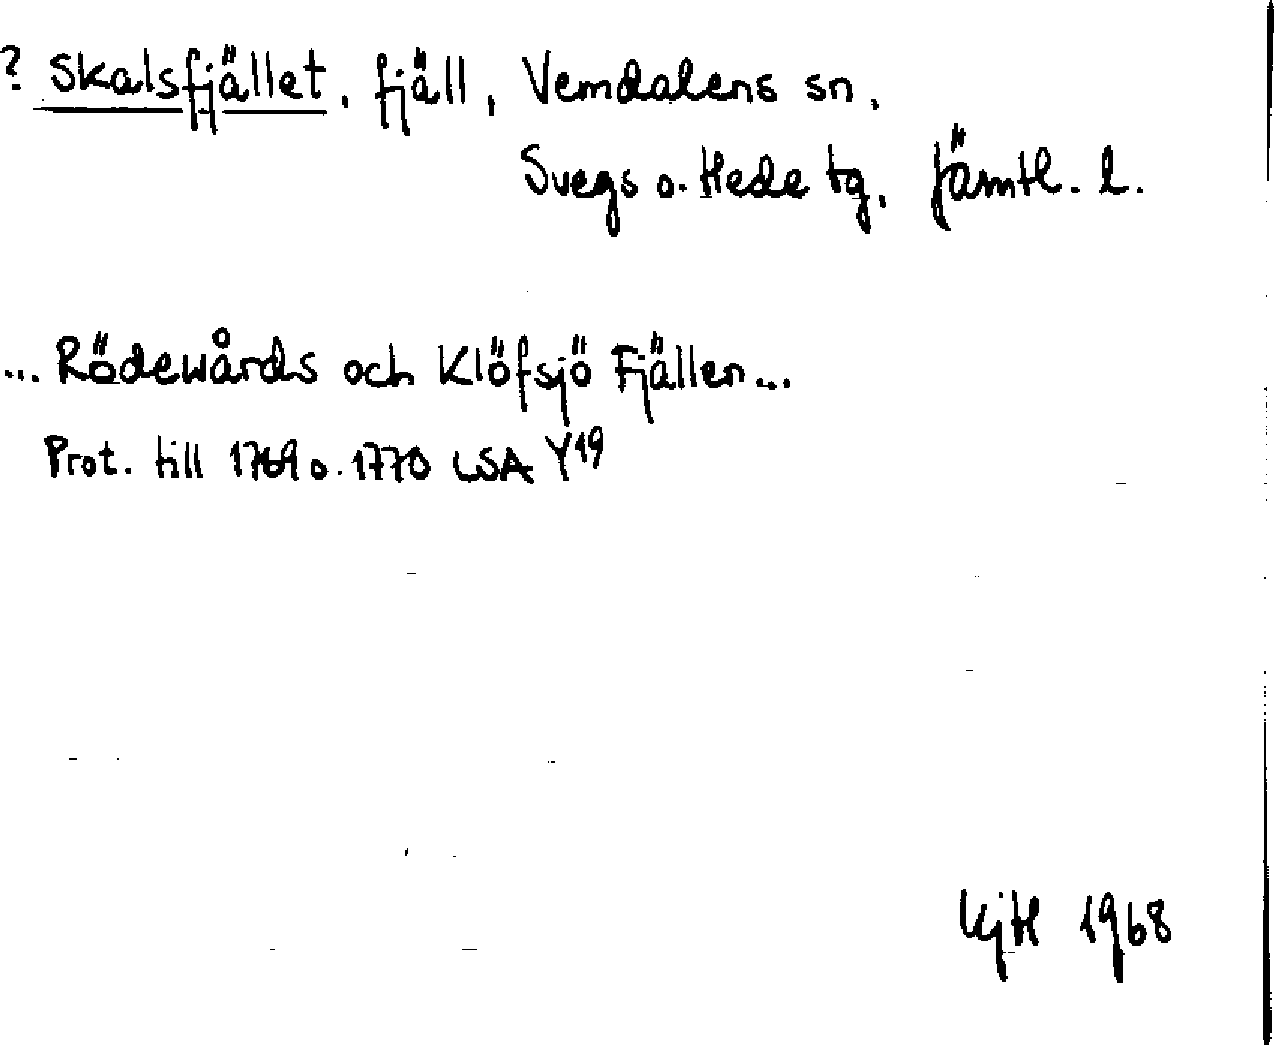 ? Skalsfjället, fjäll, Vemdalens sn.
Svegs o. Hede tg, Jämtl. l.
... Rödewårds och Klöfsjö Fjällen...
Prot. till 1769 o. 1770 LSA Y19
1968